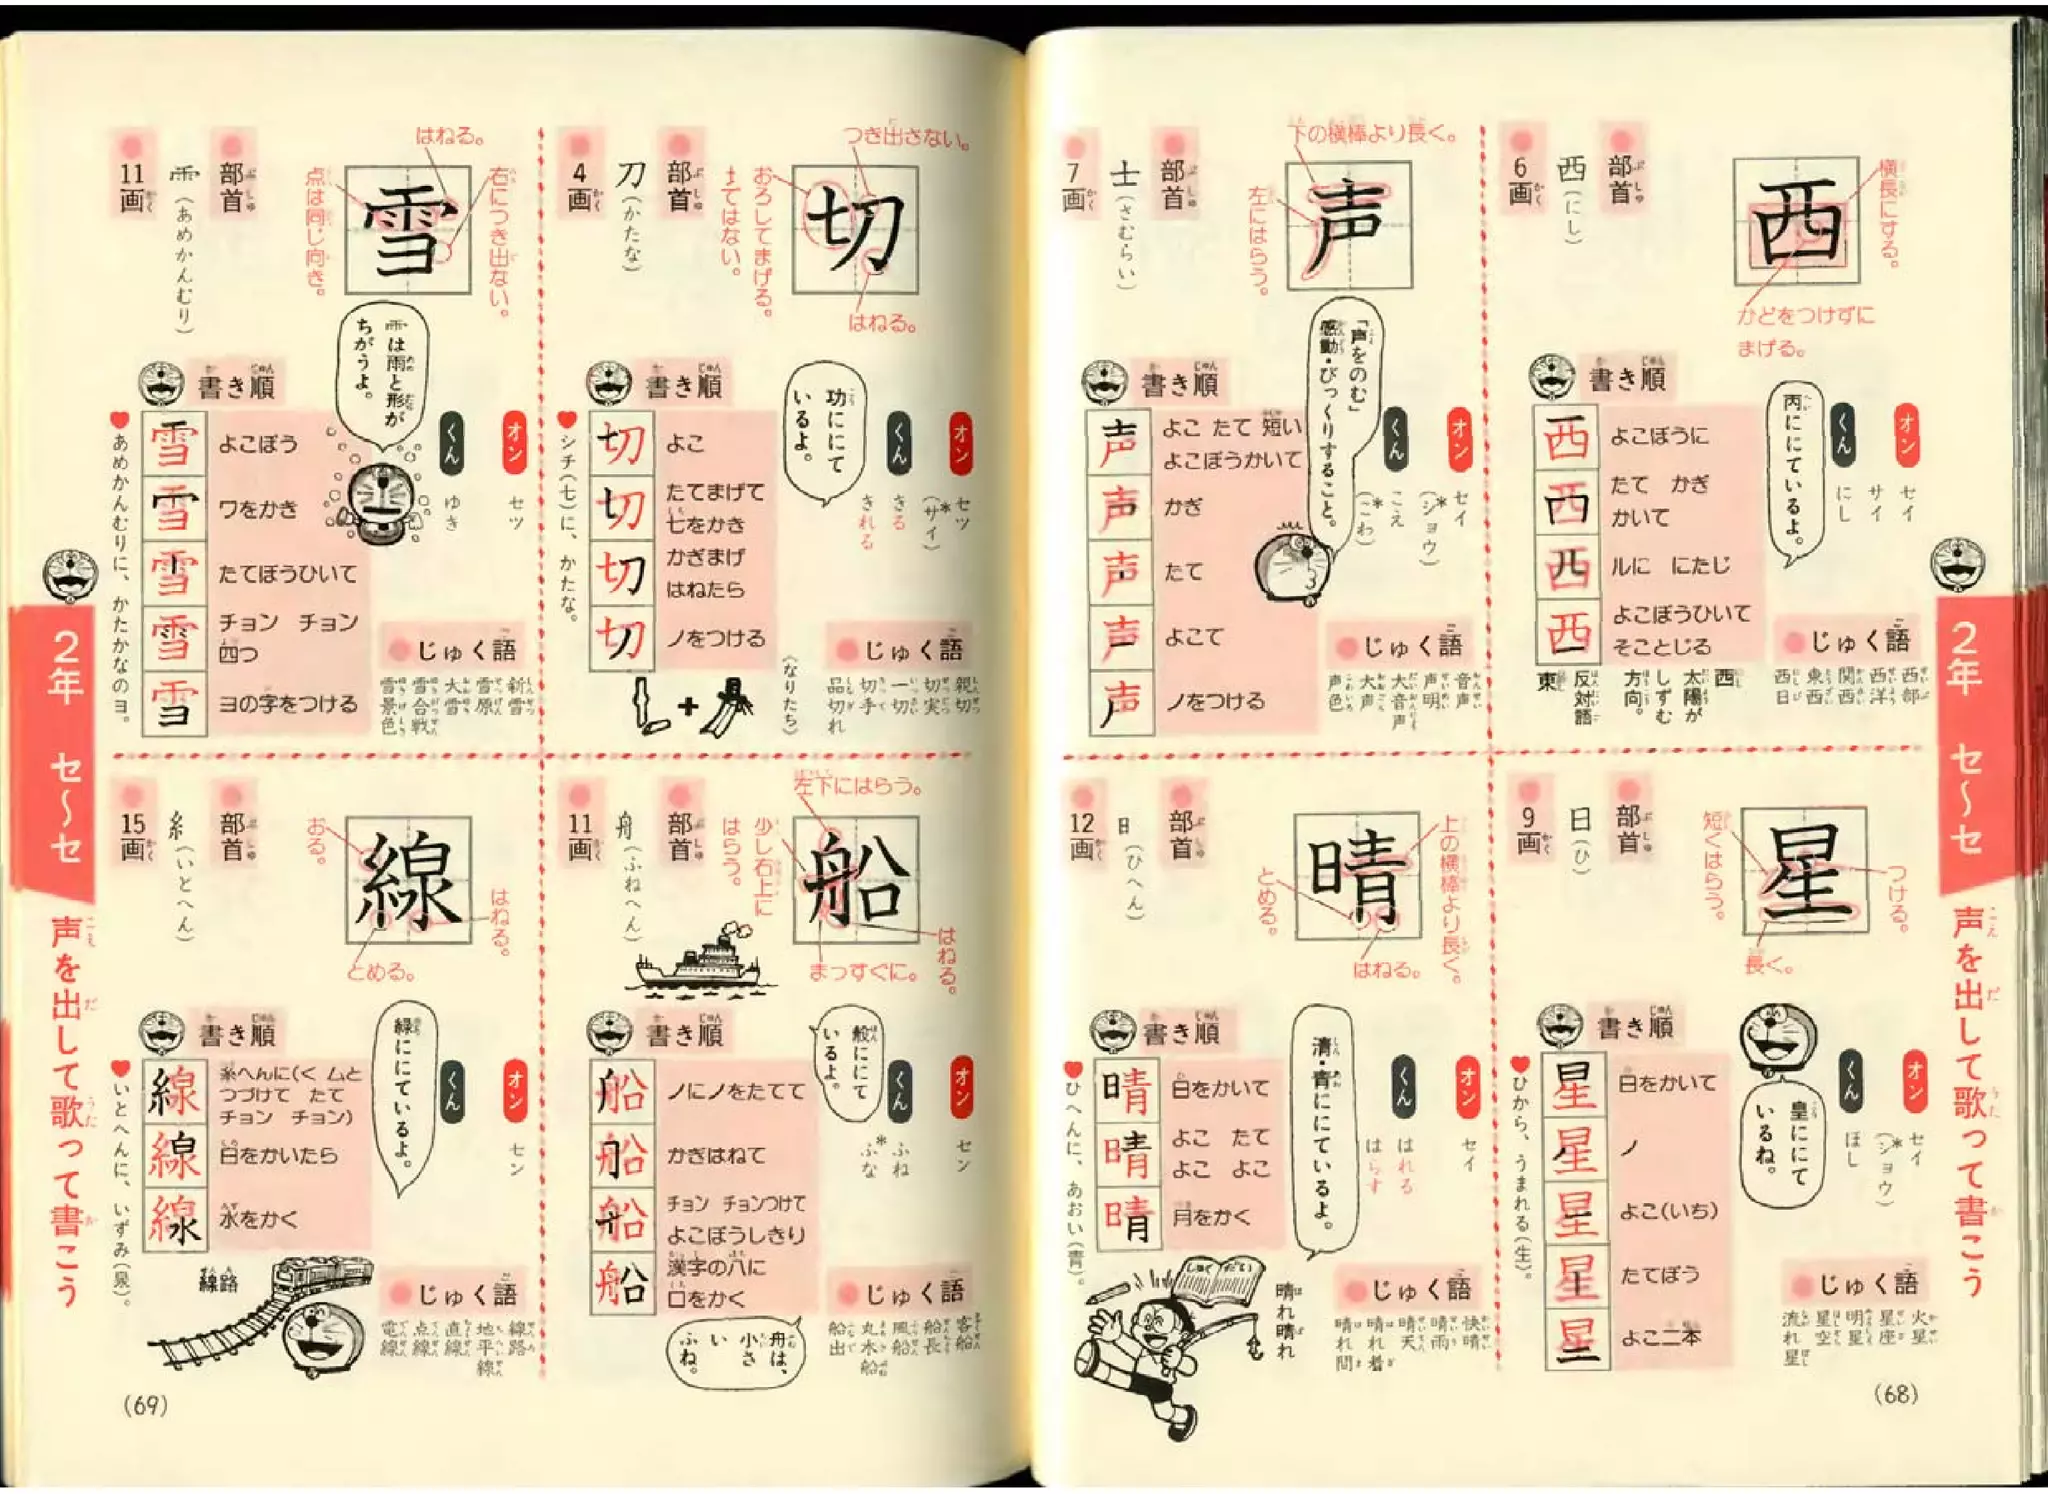 2年 セ〜セ
声を出して歌って書こう
西
横長にする。
かどをつけずに
まげる。
部首
西(にし)
6画
オン
セイ
サイ
くん
にし
丙ににているよ。
書き順
よこぼうに
たて かぎ
かいて
ルに にたじ
よこぼうひいて
そことじる
じゅく語
西部
西洋
関西
東西
西日
西
太陽が
しずむ
方向。
反対語
東
声
下の横棒より長く。
左にはらう。
部首
士(さむらい)
7画
オン
セイ
(*ショウ)
くん
こえ
(*こわ)
「声をのむ」
感動・びっくりすること。
書き順
よこ たて 短い
よこぼうかいて
かぎ
たて
よこて
ノをつける
じゅく語
音声
声明
大音声
大声
声色
星
つける。
短くはらう。
長く。
部首
日(ひ)
9画
オン
セイ
(*ショウ)
くん
ほし
皇ににて
いるね。
書き順
日をかいて
ノ
よこ(いち)
たてぼう
よこ二本
ひから、うまれる(生)。
じゅく語
火星
星座
明星
星空
流れ星
晴
上の横棒より長く。
とめる。
はねる。
部首
日(ひへん)
12画
オン
セイ
くん
はれる
はらす
清・青ににているよ。
書き順
日をかいて
よこ たて
よこ よこ
月をかく
ひへんに、あおい(青)。
じゅく語
快晴
晴雨
晴天
晴れ着
晴れ間
晴れ晴れ
(68)
切
つき出さない。
おろしてまげる。
はねる。
部首
刀(かたな)
4画
オン
セツ
(*サイ)
くん
きる
きれる
功ににて
いるよ。
書き順
よこ
たてまげて
七をかき
かぎまげ
はねたら
ノをつける
シチ(七)に、かたな。
(なりたち)
じゅく語
親切
切実
一切
切手
品切れ
雪
はねる。
右につき出ない。
点は同じ向き。
部首
(あめかんむり)
11画
オン
セツ
くん
ゆき
は雨と形が
ちがうよ。
書き順
よこぼう
ワをかき
たてぼうひいて
チョン チョン
四つ
ヨの字をつける
あめかんむりに、かたかなのヨ。
じゅく語
新雪
雪原
大雪
雪合戦
雪景色
船
左下にはらう。
少し右上に
はらう。
まっすぐに。
はねる。
部首
舟(ふねへん)
11画
オン
セン
くん
ふね
*ふな
般ににて
いるよ。
書き順
ノにノをたてて
かぎはねて
チョン チョンつけて
よこぼうしきり
漢字の八に
口をかく
舟は、
小さ
い
ふね。
じゅく語
客船
船長
風船
丸木船
船出
線
おる。
はねる。
とめる。
部首
糸(いとへん)
15画
オン
セン
くん
緑ににているよ。
書き順
糸へんに(く ムと
つづけて たて
チョン チョン)
白をかいたら
水をかく
いとへんに、いずみ(泉)。
線路
じゅく語
線路
地平線
直線
点線
電線
2年 セ〜セ
声を出して歌って書こう
(69)